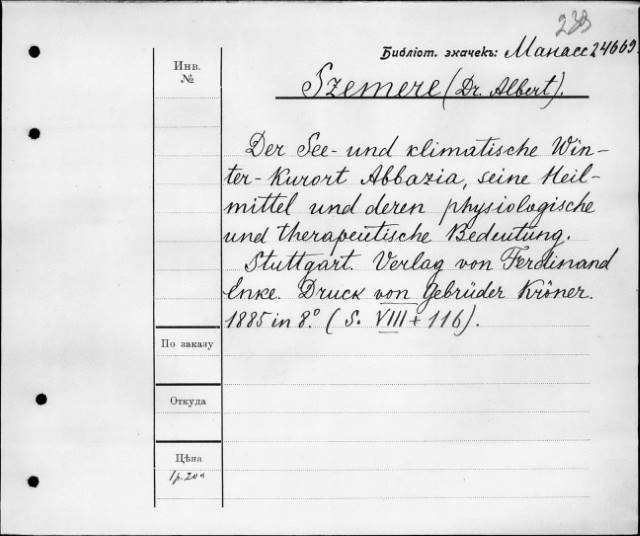 Библіот. значекъ: Манасс 24669
Инв.
№
Szemere (Dr. Albert).
Der See- und klimatische Win-
ter-Kurort Abbazia, seine Heil-
mittel und deren physiologische
und therapeutische Bedeutung.
Stuttgart. Verlag von Ferdinand
Enke. Druck von Gebrüder Kröner.
1885 in 8.° (S. VIII + 116).
По заказу
Откуда
Цѣна